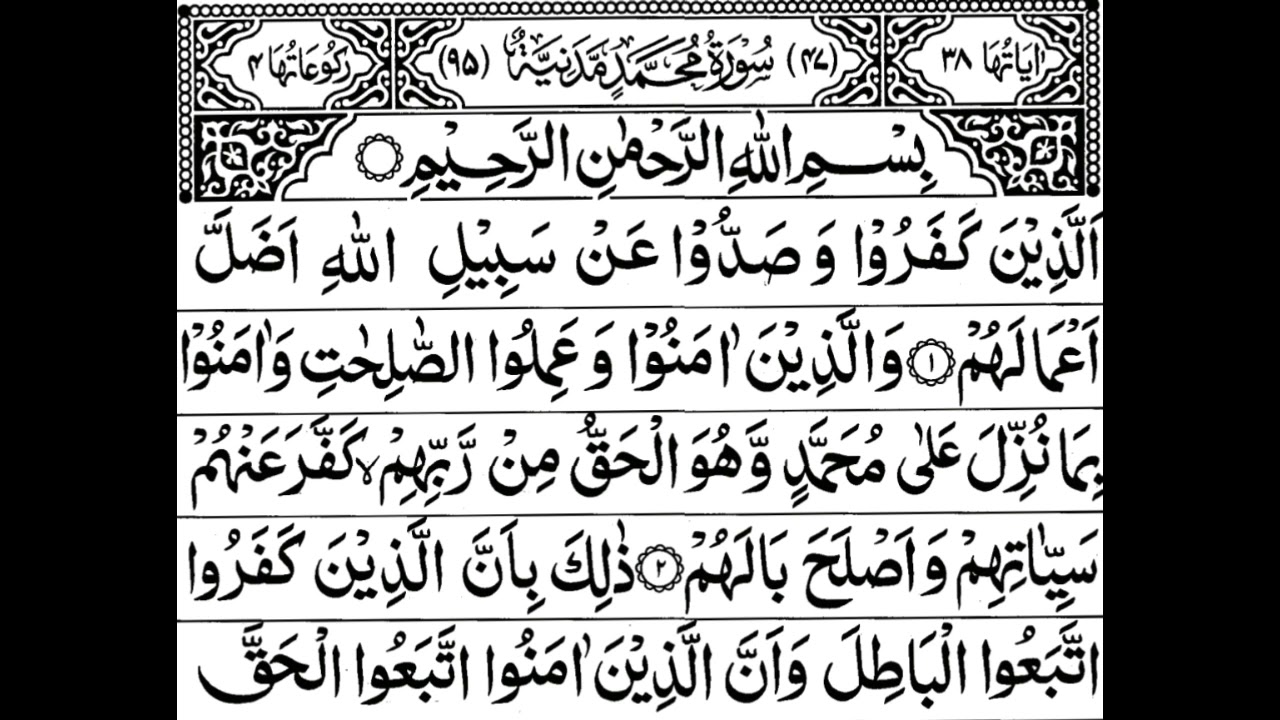 اٰيَاتُهَا ٣٨ (٤٧) سُوْرَةُ مُحَمَّدٍ مَّدَنِيَّةٌ (٩٥) رُكُوْعَاتُهَا ٤
بِسْمِ اللّٰهِ الرَّحْمٰنِ الرَّحِيْمِ
اَلَّذِيْنَ كَفَرُوْا وَ صَدُّوْا عَنْ سَبِيْلِ اللّٰهِ اَضَلَّ
اَعْمَالَهُمْ ١ وَالَّذِيْنَ اٰمَنُوْا وَ عَمِلُوا الصّٰلِحٰتِ وَاٰمَنُوْا
بِمَا نُزِّلَ عَلٰى مُحَمَّدٍ وَّهُوَ الْحَقُّ مِنْ رَّبِّهِمْ ۙ كَفَّرَ عَنْهُمْ
سَيِّاٰتِهِمْ وَاَصْلَحَ بَالَهُمْ ٢ ذٰلِكَ بِاَنَّ الَّذِيْنَ كَفَرُوا
اتَّبَعُوا الْبَاطِلَ وَاَنَّ الَّذِيْنَ اٰمَنُوا اتَّبَعُوا الْحَقَّ